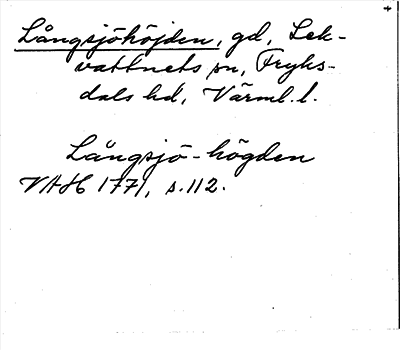 Långsjöhöjden, gd, Lek-
vattnets sn, Fryks-
dals hd, Värml. l.
Långsjö-högden
VAH 1771, s. 112.